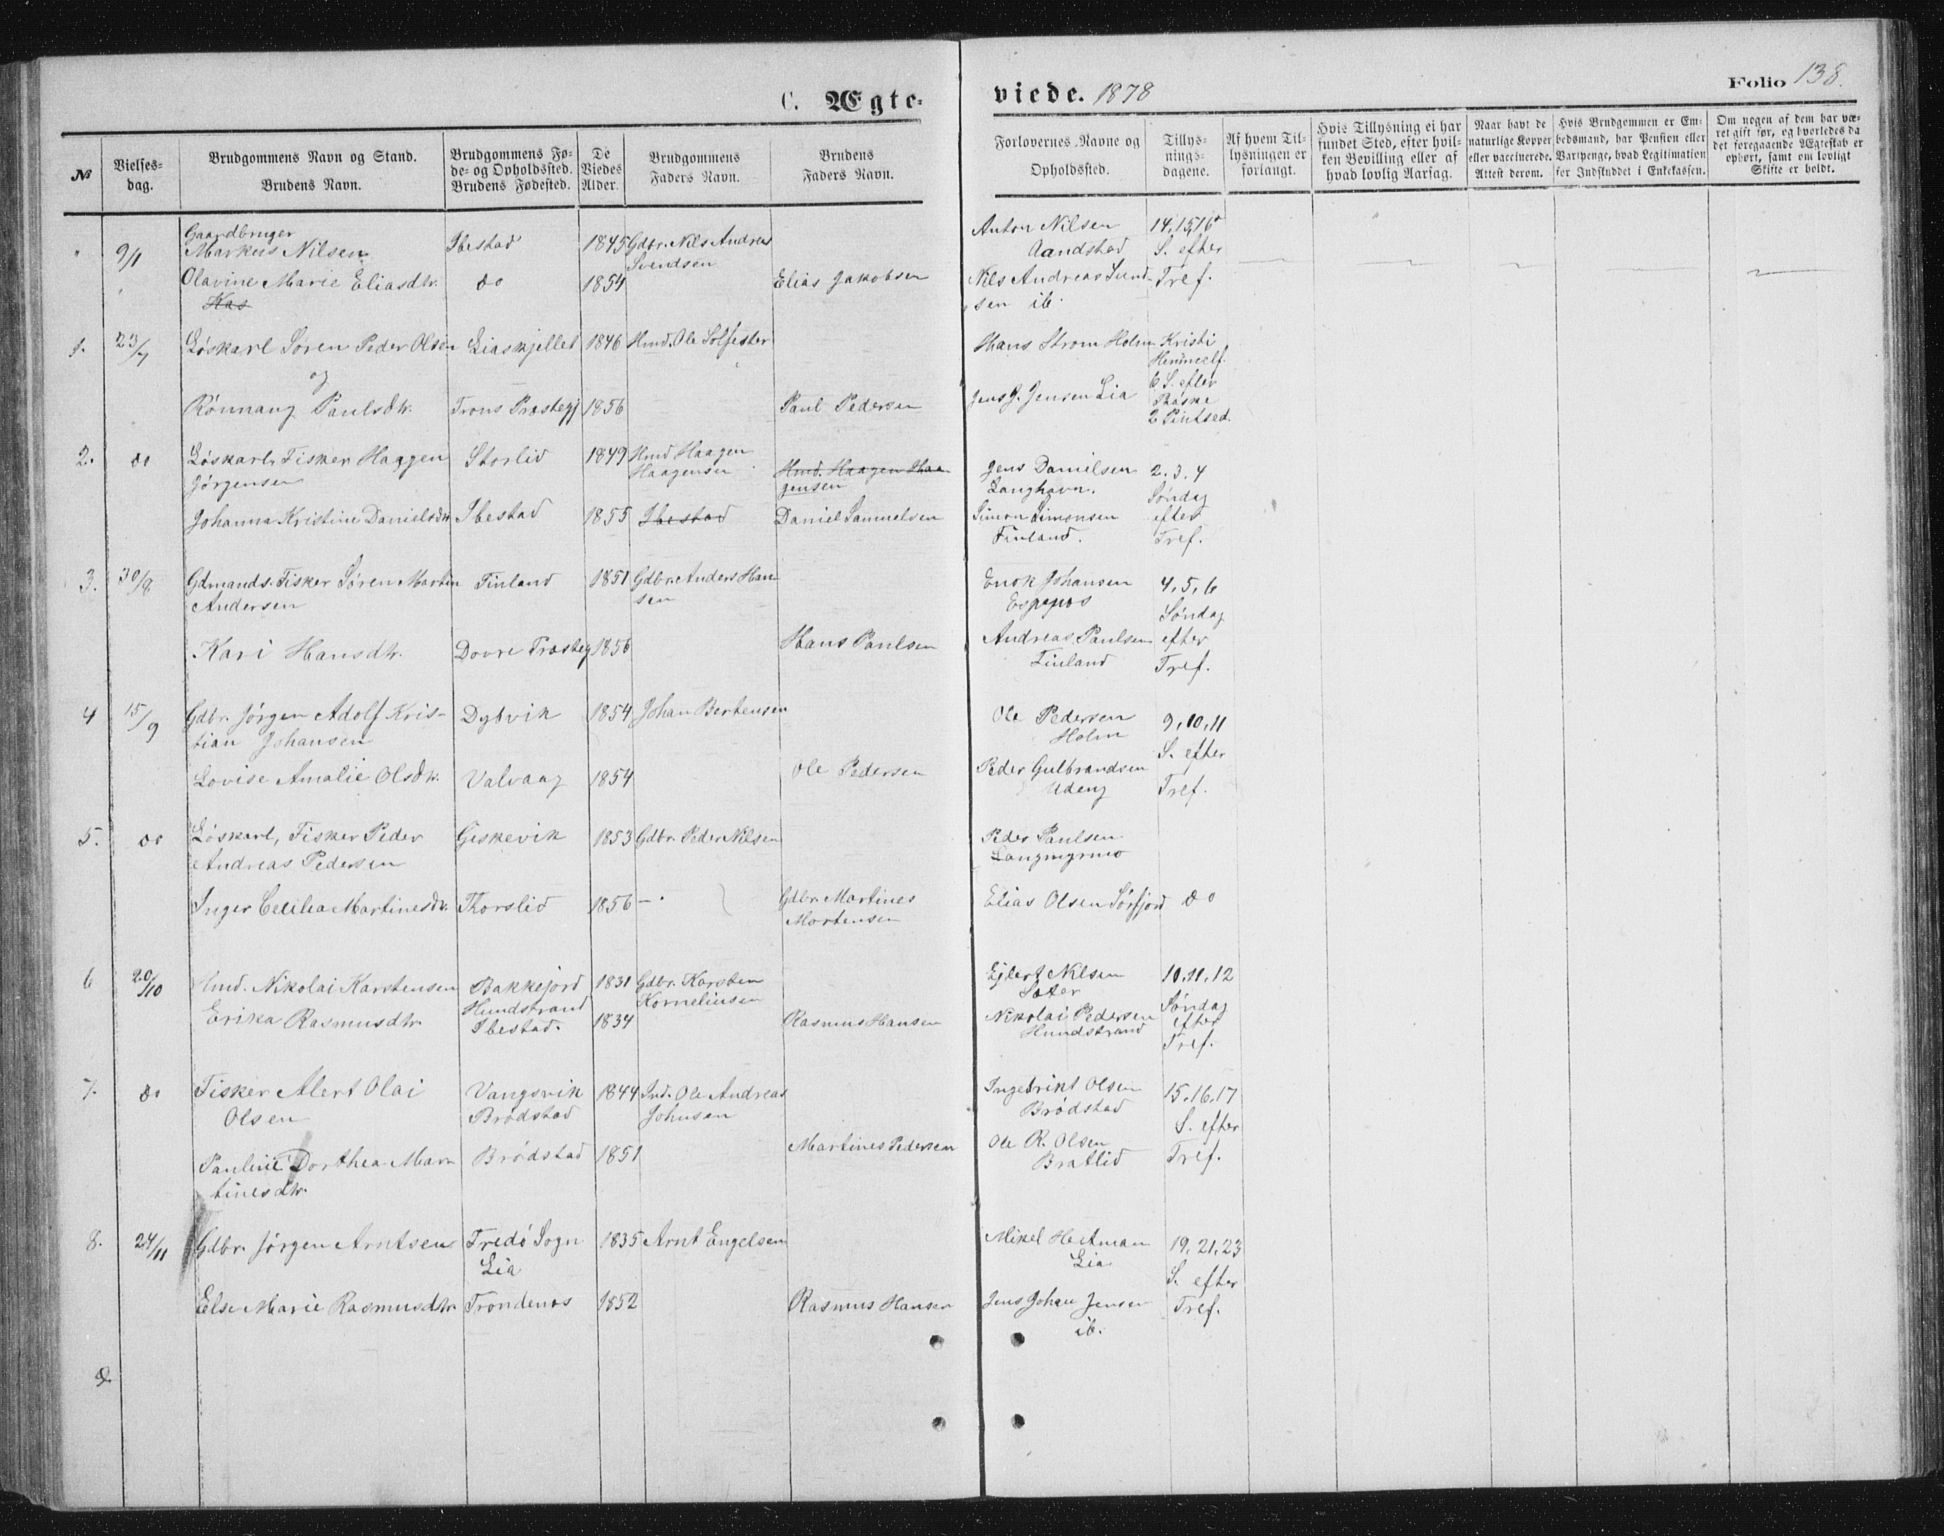 C. Ægte-
viede. 1878
Folio 138.
№
Vielses-
dag.
Brudgommens Navn og Stand.
Brudens Navn.
Brudgommens Fø-
de- og Opholdssted.
Brudens Fødested.
De
Viedes
Alder.
Brudgommens
Faders Navn.
Brudens
Faders Navn.
Forlovernes Navne og
Opholdssted.
Tillys-
nings-
dagene.
Af hvem Til-
lysningen er
forlangt.
Hvis Tillysning ei har
fundet Sted, efter hvil-
ken Bevilling eller af
hvad lovlig Aarsag.
Naar havt de
naturlige Kopper
eller vaccinerede.
Attest derom.
Hvis Brudgommen er Em-
bedsmand, har Pension eller
Vartpenge, hvad Legitimation
for Indskuddet i Enkekassen.
Om nogen af dem har væ-
ret gift før, og hvorledes da
det foregaaende Ægteskab er
ophørt, samt om lovligt
Skifte er holdt.
" 9/1 Gaardbruger
Markus Nilsen Ibestad 1845 Gdbr. Nils Andreas
Svendsen
Anton Nilsen 14, 15, 16
Aandstad S. efter
Olavine Marie Eliasdtr. do 1854 Elias Jakobsen
Kas
Nils Andreas Tref.
sen ib.
1. 23/7 Løskarl Søren Peder Olsen Liaskjellet 1846 Hmd. Ole
Hans Strom Holm Kristi
Himmelf.
og
Rønnaug Paulsdtr. Trons Præstegj 1856 Paul Pedersen
Jens J. Jensen Lia 6 S. efter
Paaske
2 Pintsed.
2. do Løskarl, Fisker Haagen Storlid 1849 Hmd Haagen
Jørgensen Haagensen Hmd. Haagen Haa
gensen
Jens Danielsen 2. 3. 4
Langhavn. Søndag
Johanna Kristine Danielsdtr Ibestad 1855 Ibestad Daniel Samuelsen
Simon Simonsen efter
Finland. Tref.
3. 30/8 Gdmands. Fisker Søren Martin Finland 1851 Gdbr. Anders Han
Andersen sen
Enok Johansen 4, 5, 6
Espenes Søndag
Kari Hansdtr. Dovre Præsteg 1856 Hans Paulsen
Andreas Paulsen efter
Finland Tref.
4 15/9 Gdbr. Jørgen Adolf Kris- Dybvik 1854 Johan Bertensen
tian Johansen
Ole Pedersen 9, 10, 11
Holm S. efter
Lovise Amalie Olsdtr. Valvaag 1854 Ole Pedersen
Peder Gulbrandsen
Udeng Tref.
5. do Løskarl, Fisker Peder Geskevik 1853 Gdbr. Peder Nilsen
Andreas Pedersen
Peder Paulsen
Langmyrmo
Inger Cecilia Martinesdtr. Thorslid 1856 — Gdbr. Martines
Mortensen
Elias Olsen Sørfjord do
6 20/10 Hmd. Nikolai Karstensen Bakkejord 1831 Gdbr. Karsten
Hundstrand Kornelinsen
Erika Rasmusdtr. Ibestad. 1834 Rasmus Hansen
Ejlert Nilsen 10. 11. 12
Sæter Søndag
Nikolai Pedersen efter
Hundstrand Tref.
7. do Fisker Alert Olai Vangsvik 1844 Ind. Ole Andreas
Olsen Brødstad Johnsen
Ingebrikt Olsen 15. 16. 17
Brødstad S. efter
Pauline Dorthea Mar Brødstad 1851 Martines Pedersen
tinesdtr.
Ole R. Olsen
Bratlid Tref.
8. 24/11 Gdbr. Jørgen Arntsen Tredø Sogn 1835 Arnt Engelsen
Lia
Mikel Heitman 19. 21. 23
Lia S. efter
Else Marie Rasmusdtr. Trondenæs 1852 Rasmus Hansen
Jens Johan Jensen Tref.
ib.
9.